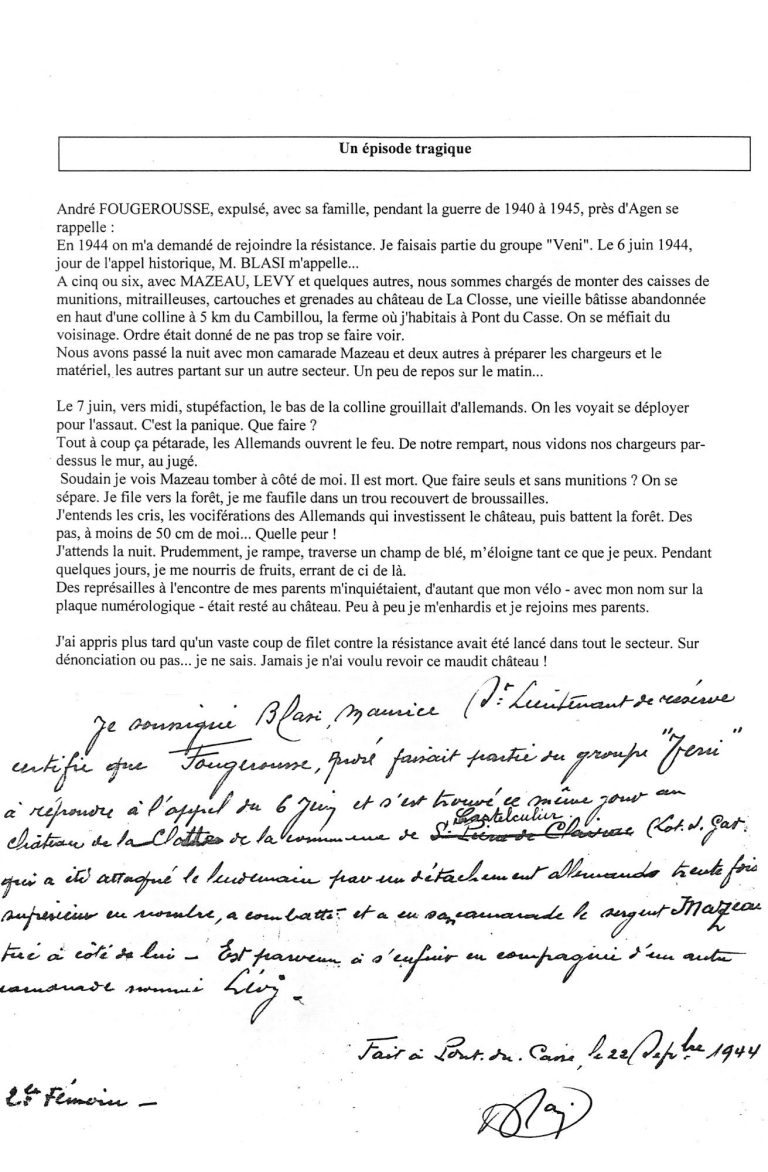 Un épisode tragique
André FOUGEROUSSE, expulsé, avec sa famille, pendant la guerre de 1940 à 1945, près d'Agen se
rappelle :
En 1944 on m'a demandé de rejoindre la résistance. Je faisais partie du groupe "Veni". Le 6 juin 1944,
jour de l'appel historique, M. BLASI m'appelle...
A cinq ou six, avec MAZEAU, LEVY et quelques autres, nous sommes chargés de monter des caisses de
munitions, mitrailleuses, cartouches et grenades au château de La Closse, une vieille bâtisse abandonnée
en haut d'une colline à 5 km du Cambillou, la ferme où j'habitais à Pont du Casse. On se méfiait du
voisinage. Ordre était donné de ne pas trop se faire voir.
Nous avons passé la nuit avec mon camarade Mazeau et deux autres à préparer les chargeurs et le
matériel, les autres partant sur un autre secteur. Un peu de repos sur le matin...
Le 7 juin, vers midi, stupéfaction, le bas de la colline grouillait d'allemands. On les voyait se déployer
pour l'assaut. C'est la panique. Que faire ?
Tout à coup ça pétarade, les Allemands ouvrent le feu. De notre rempart, nous vidons nos chargeurs par-
dessus le mur, au jugé.
Soudain je vois Mazeau tomber à côté de moi. Il est mort. Que faire seuls et sans munitions ? On se
sépare. Je file vers la forêt, je me faufile dans un trou recouvert de broussailles.
J'entends les cris, les vociférations des Allemands qui investissent le château, puis battent la forêt. Des
pas, à moins de 50 cm de moi... Quelle peur !
J'attends la nuit. Prudemment, je rampe, traverse un champ de blé, m’éloigne tant ce que je peux. Pendant
quelques jours, je me nourris de fruits, errant de ci de là.
Des représailles à l'encontre de mes parents m'inquiétaient, d'autant que mon vélo - avec mon nom sur la
plaque numérologique - était resté au château. Peu à peu je m'enhardis et je rejoins mes parents.
J'ai appris plus tard qu'un vaste coup de filet contre la résistance avait été lancé dans tout le secteur. Sur
dénonciation ou pas... je ne sais. Jamais je n'ai voulu revoir ce maudit château !
Je soussigné Blasi, Maurice Lieutenant de réserve
certifie que Fougerousse, André faisait partie du groupe "Veni"
à répondre à l'appel du 6 Juin et s'est trouvé ce même jour au
Castelculier
château de la de la commune de (Lot. &. Gar.
qui a été attaqué le lendemain par un détachement allemands trente fois
supérieur en nombre, a combattu et a eu son camarade le sergent Mazeau
tué à côté de lui - Est parvenu à s'enfuir en compagnie d'un autre
camarade nommé Lévy -
Fait à Pont. du. Casse, le 22 Sepbre 1944
Témoin -
Blasi